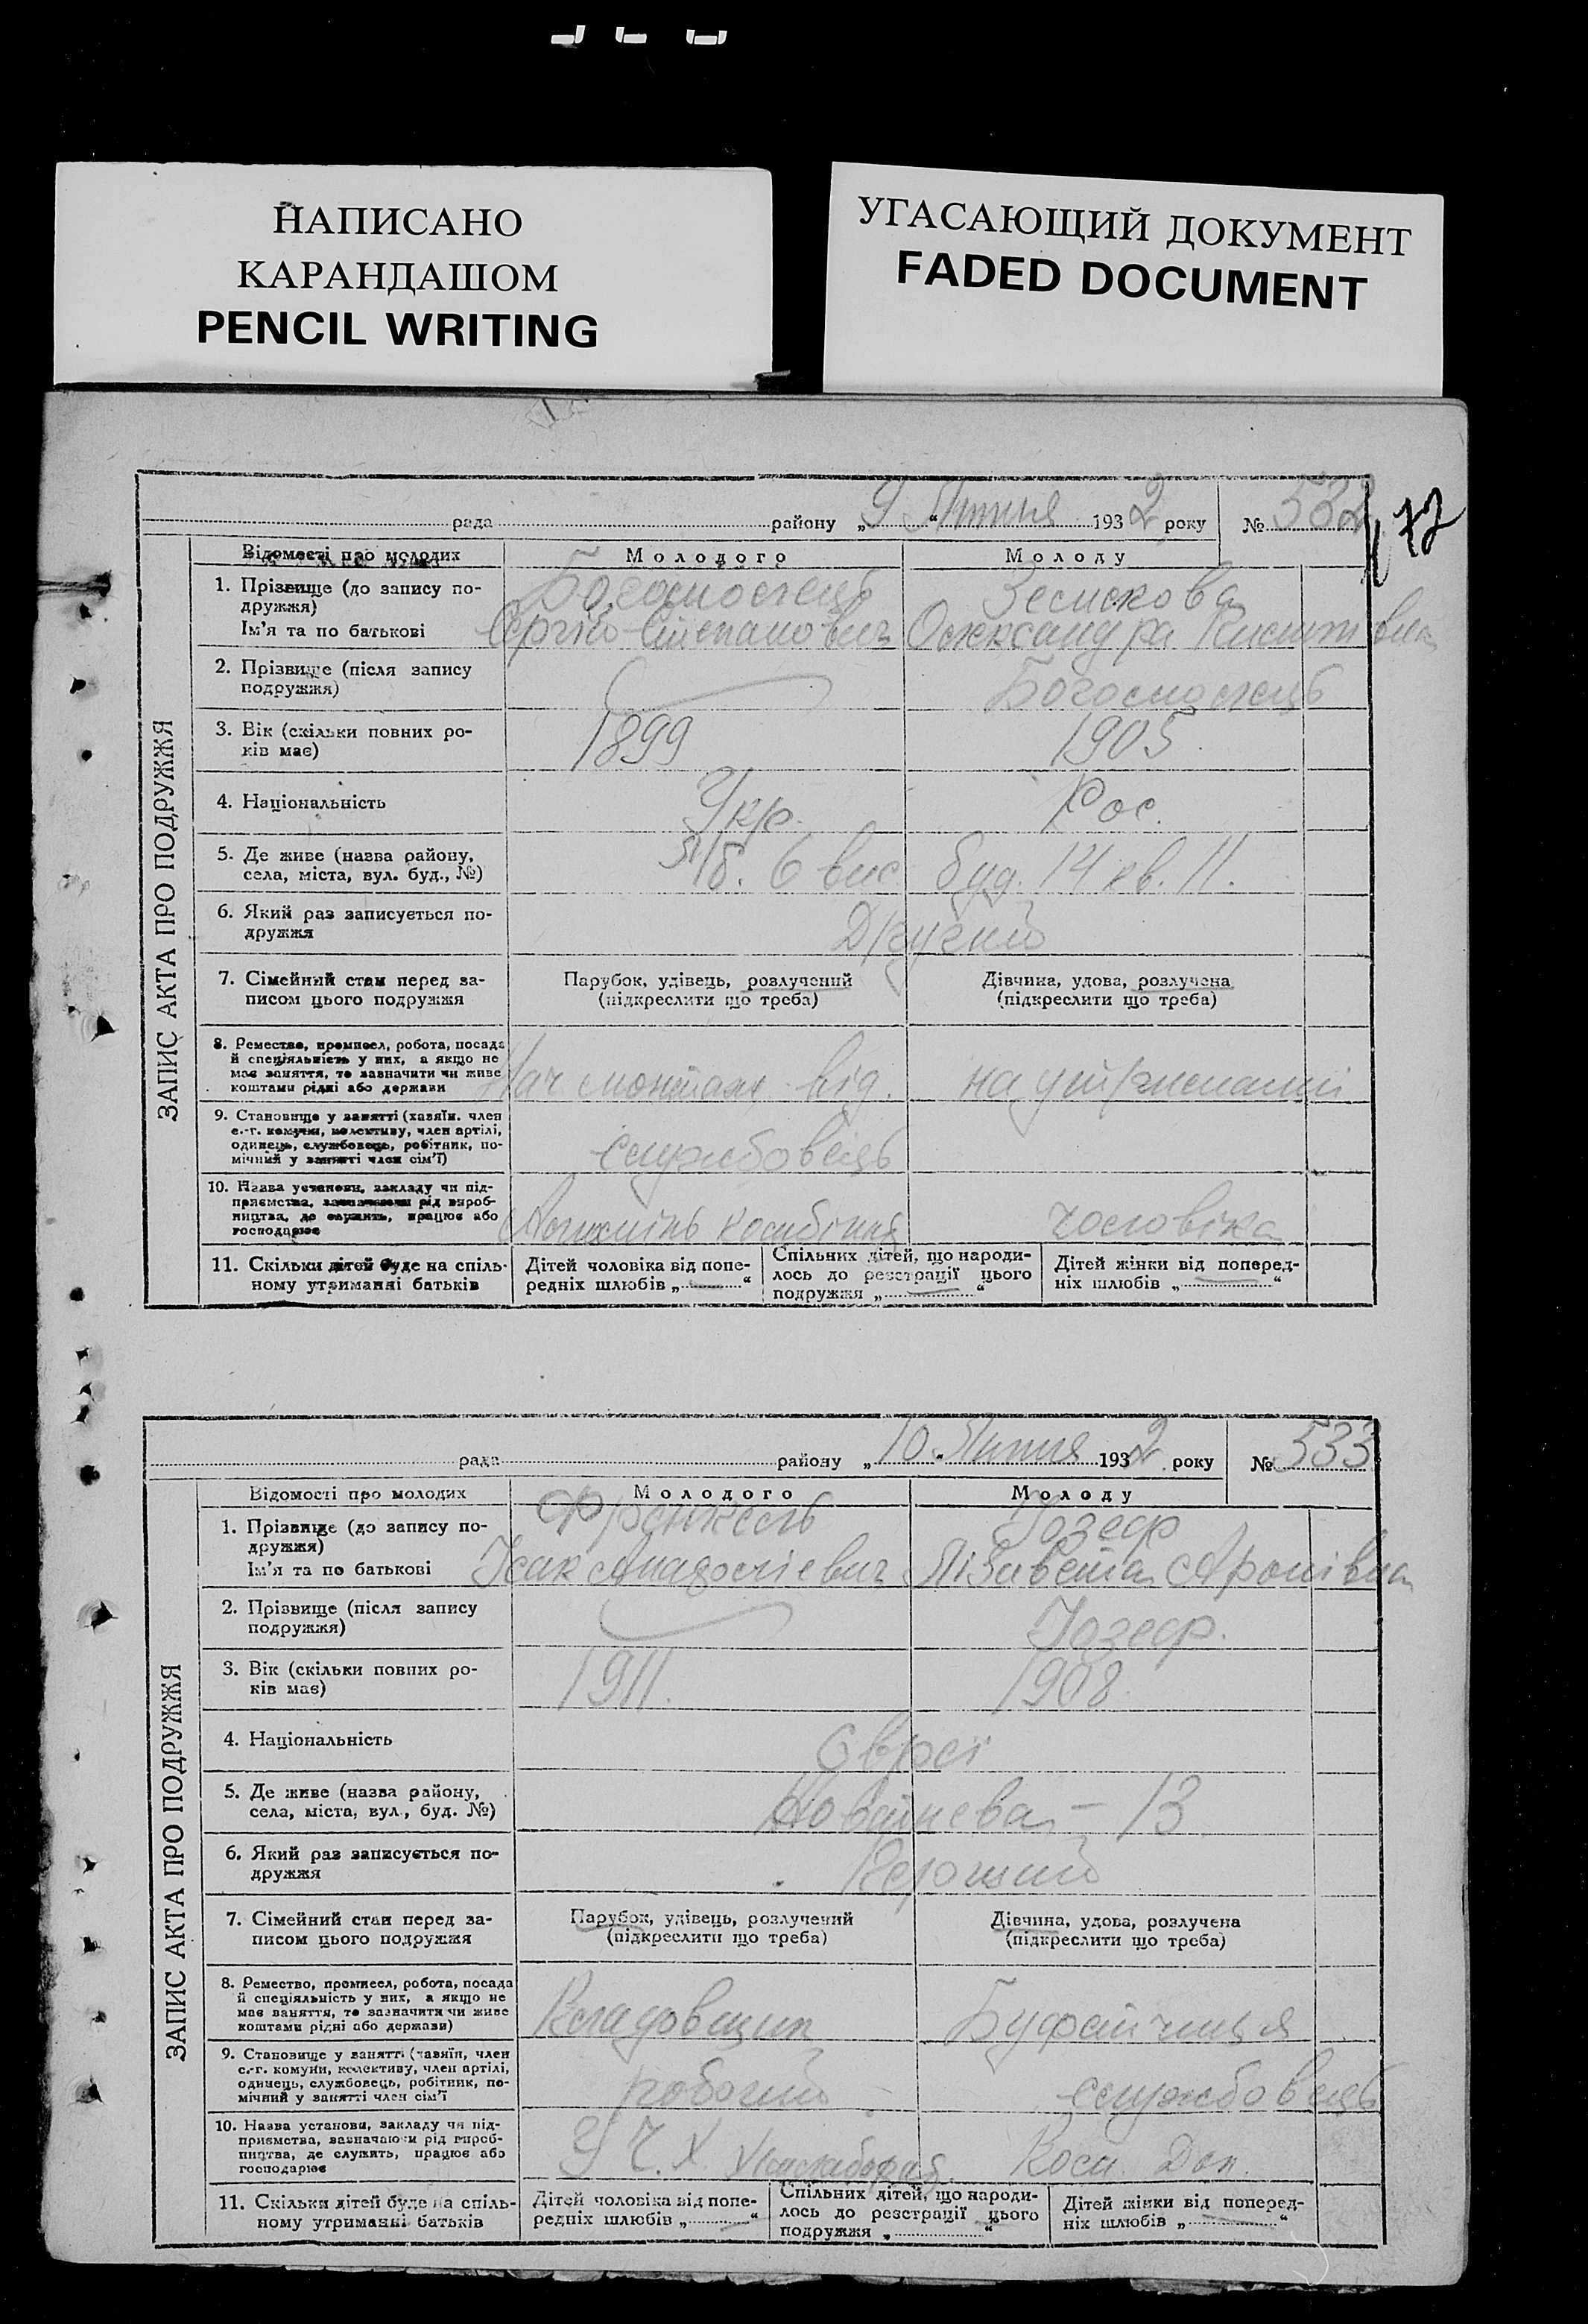 НАПИСАНО
КАРАНДАШОМ
PENCIL WRITING
УГАСАЮЩИЙ ДОКУМЕНТ
FADED DOCUMENT
рада району „9“ Липня 1932 року № 532
72
ЗАПИС АКТА ПРО ПОДРУЖЖЯ
Відомості про молодих Молодого Молоду
1. Прізвище (до запису по-
дружжя)
Ім'я та по батькові Сергій Степанович Олександра
2. Прізвище (після запису
подружжя)
3. Вік (скільки повних ро- 1899 1905
ків має)
4. Національність Укр. Рос.
5. Де живе (назва району,
села, міста, вул. буд., №) 6 вис буд. 14 кв. 11.
6. Який раз записується по-
дружжя Другий
7. Сімейний стан перед за- Парубок, удівець, розлучений Дівчина, удова, розлучена
писом цього подружжя (підкреслити що треба) (підкреслити що треба)
8. Ремество, промисел, робота, посада
й спеціяльність у них, а якщо не
має заняття, то зазначити чи живе
коштами рідні або держави Нач монтаж. від. на утриманні
9. Становище у занятті (хазяїн, член
с.-г. комуни, колективу, член артілі,
одинець, службовець, робітник, по-
мічний у занятті член сім'ї) службовець
10. Назва установи, закладу чи під-
приємства, зазначаючи рід вироб-
ництва, де служить, працює або
господарює чоловіка
11. Скільки дітей буде на спіль-
ному утриманні батьків
Дітей чоловіка від попе-
редніх шлюбів „—“
Спільних дітей, що народи-
лось до реєстрації цього
подружжя „—“
Дітей жінки від поперед-
ніх шлюбів „—“
рада району „10“ Липня 1932 року № 533
ЗАПИС АКТА ПРО ПОДРУЖЖЯ
Відомості про молодих Молодого Молоду
1. Прізвище (до запису по- Френкель Іозеф
дружжя)
Ім'я та по батькові Ісак Анатолієвич Лізавета Аронівна
2. Прізвище (після запису Іозеф.
подружжя)
3. Вік (скільки повних ро- 1911. 1908.
ків має)
4. Національність Євреї
5. Де живе (назва району,
села, міста, вул., буд. №) – 13
6. Який раз записується по-
дружжя Перший
7. Сімейний стан перед за- Парубок, удівець, розлучений Дівчина, удова, розлучена
писом цього подружжя (підкреслити що треба) (підкреслити що треба)
8. Ремество, промисел, робота, посада
й спеціяльність у них, а якщо не
має заняття, то зазначити чи живе
коштами рідні або держави) Кладовщик Буфетчиця
9. Становище у занятті (хазяїн, член
с.-г. комуни, колективу, член артілі,
одинець, службовець, робітник, по-
мічний у занятті член сім'ї робочий службовець
10. Назва установи, закладу чи під-
приємства, зазначаючи рід вироб-
ництва, де служить, працює або
господарює
11. Скільки дітей буде на спіль-
ному утриманні батьків
Дітей чоловіка від попе-
редніх шлюбів „—“
Спільних дітей, що народи-
лось до реєстрації цього
подружжя „“
Дітей жінки від поперед-
ніх шлюбів „—“